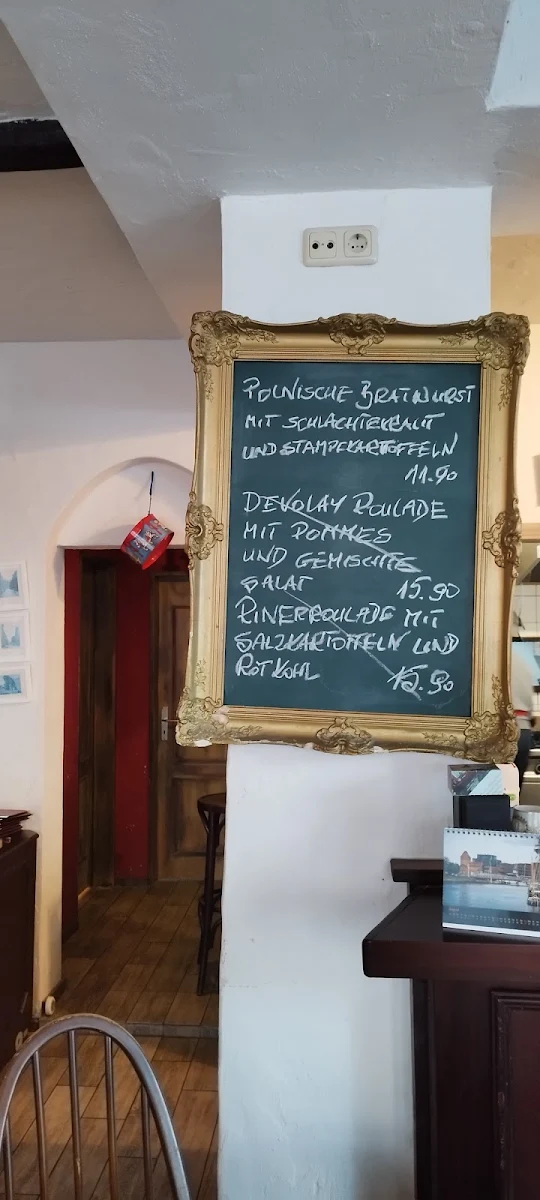 POLNISCHE BRATWURST
MIT SCHLACHTEKRAUT
UND STAMPFKARTOFFELN
11.90
DEVOLAY ROULADE
MIT POMMES
UND GEMISCHTE
SALAT 15.90
RINERROULADE MIT
SALZKARTOFFELN UND
ROTKOHL 15.90